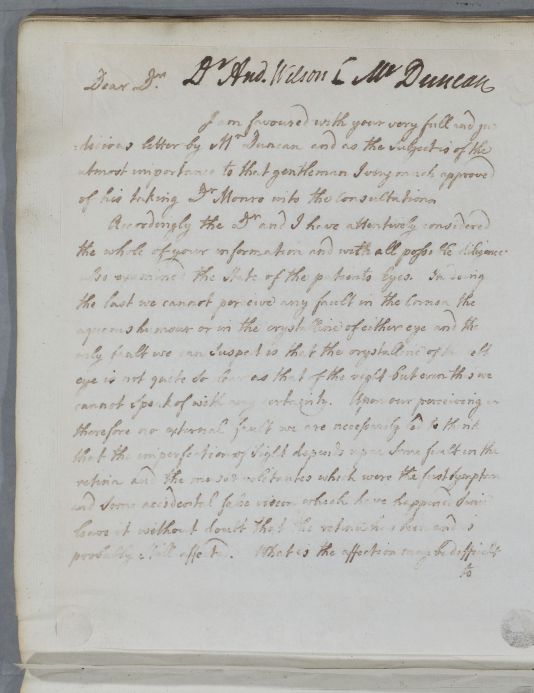 Dear Dr. Dr And. Wilson C Mr Duncan
I am favoured with your very full and ju-
-dicious letter by Mr Duncan and as the subject is of the
utmost importance to that gentleman I very much approved
of his taking Dr Monro into the Consultation
Accordingly the Dr and I have attentively considered
the whole of your information and with all possible diligence
also examined the State of the patients Eyes. In doing
the last we cannot perceive any fault in the Cornea the
aqueous humour or in the crystalline of either eye and the
only fault we can Suspect is that the crystalline of the left
eye is not quite so clear as that of the right but even this we
cannot speak of with any certainty. Upon our perceiving
therefore no external fault we are necessarily led to think
that the imperfection of sight depends upon some fault in the
retina and the muscae volitantes which were the first symptom
and some accidental false vision which have happened Since
leave it without doubt that the retina has been and is
probably still affected. What is the affection may be difficult
to